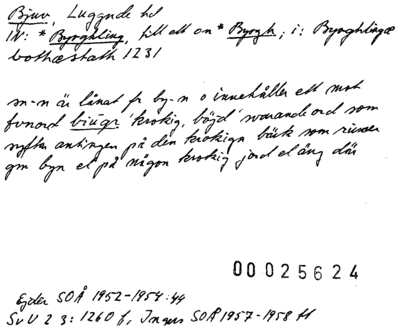 Bjuv, Luggude hd
IN: * Byrghling, till ett on * Byrgh; i: Byrghlingæ
bothæstath 1231
sn-n är lånat fr by-n o innehåller ett mot
fvnord biúgr 'krokig, böjd' svarande ord som
syftar antingen på den krokiga bäck som rinner
gm byn el på någon krokig jord el äng där
00025624
Ejder SOÅ 1952-1954:44
SvU 2 3:1260 f, Ingers SOÅ 1957-1958 ff